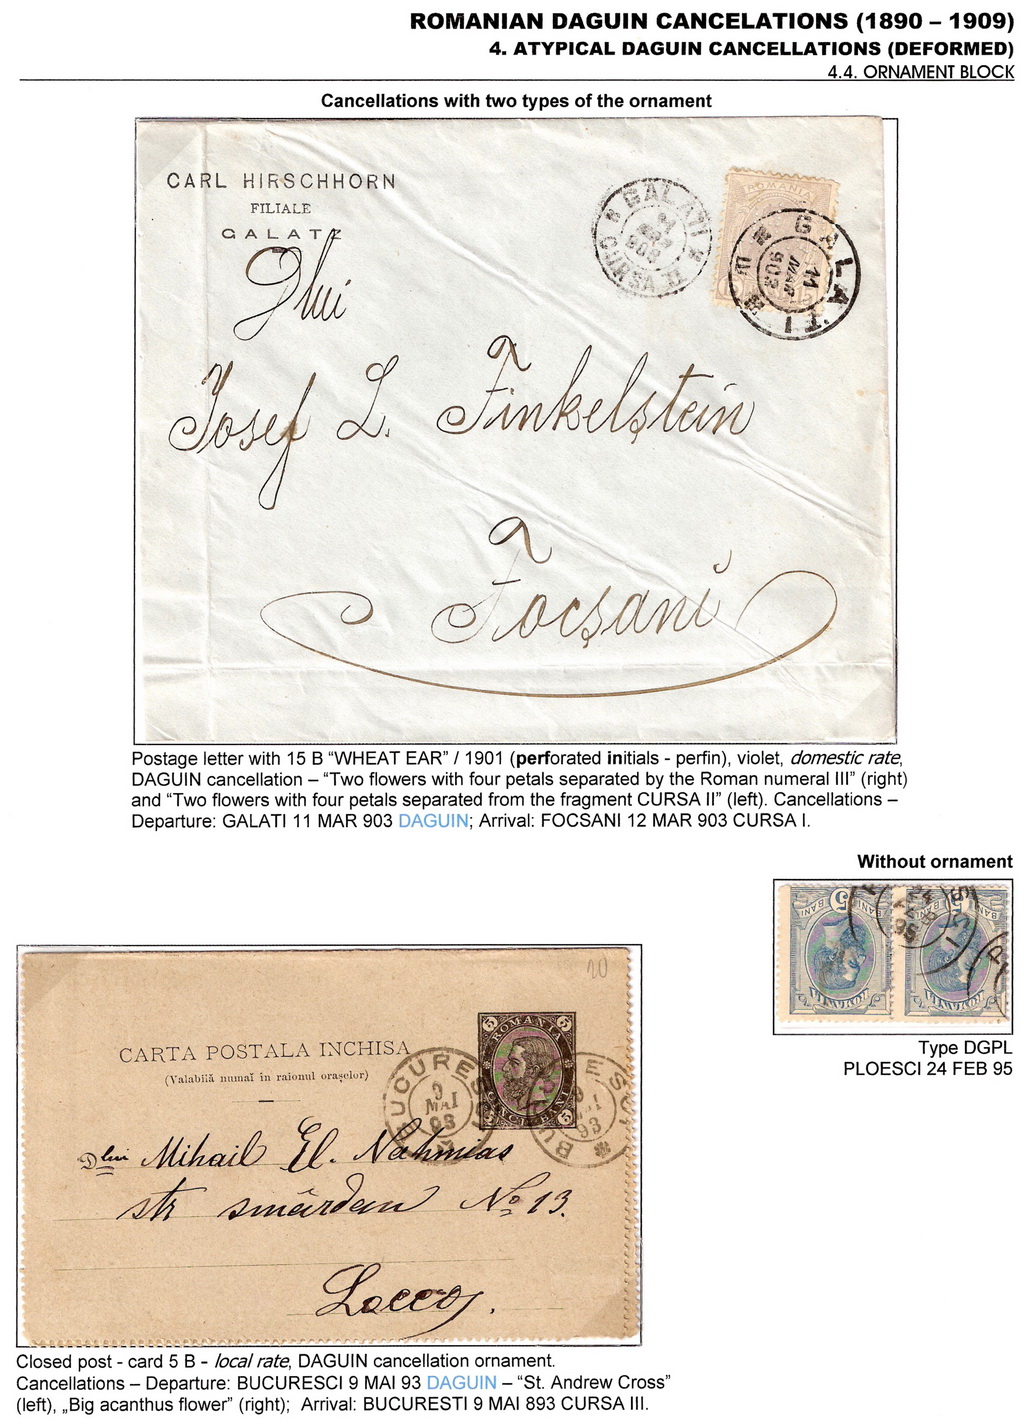 ROMANIAN DAGUIN CANCELATIONS (1890 – 1909)
4. ATYPICAL DAGUIN CANCELLATIONS (DEFORMED)
4.4. ORNAMENT BLOCK
Cancellations with two types of the ornament
CARL HIRSCHHORN
FILIALE
GALATZ
GALATI
CURSA II
ROMANIA
GALATI
11
MAR
903
Dlui
Josef L. Finkelstein
Focșani
Postage letter with 15 B “WHEAT EAR” / 1901 (perforated initials - perfin), violet, domestic rate,
DAGUIN cancellation – “Two flowers with four petals separated by the Roman numeral III” (right)
and “Two flowers with four petals separated from the fragment CURSA II” (left). Cancellations –
Departure: GALATI 11 MAR 903 DAGUIN; Arrival: FOCSANI 12 MAR 903 CURSA I.
Without ornament
5 BANI 5 BANI
ROMANIA ROMANIA
Type DGPL
PLOESCI 24 FEB 95
20
CARTA POSTALA INCHISA
(Valabilă numai în raionul orașelor)
5 ROMANIA 5
5 CINCI BANI 5
BUCURESCI
9
MAI
93
Dlui Mihail El. Nahmias
str smârdan No 13.
Loco.
Closed post - card 5 B - local rate, DAGUIN cancellation ornament.
Cancellations – Departure: BUCURESCI 9 MAI 93 DAGUIN – “St. Andrew Cross”
(left), „Big acanthus flower” (right); Arrival: BUCURESTI 9 MAI 893 CURSA III.